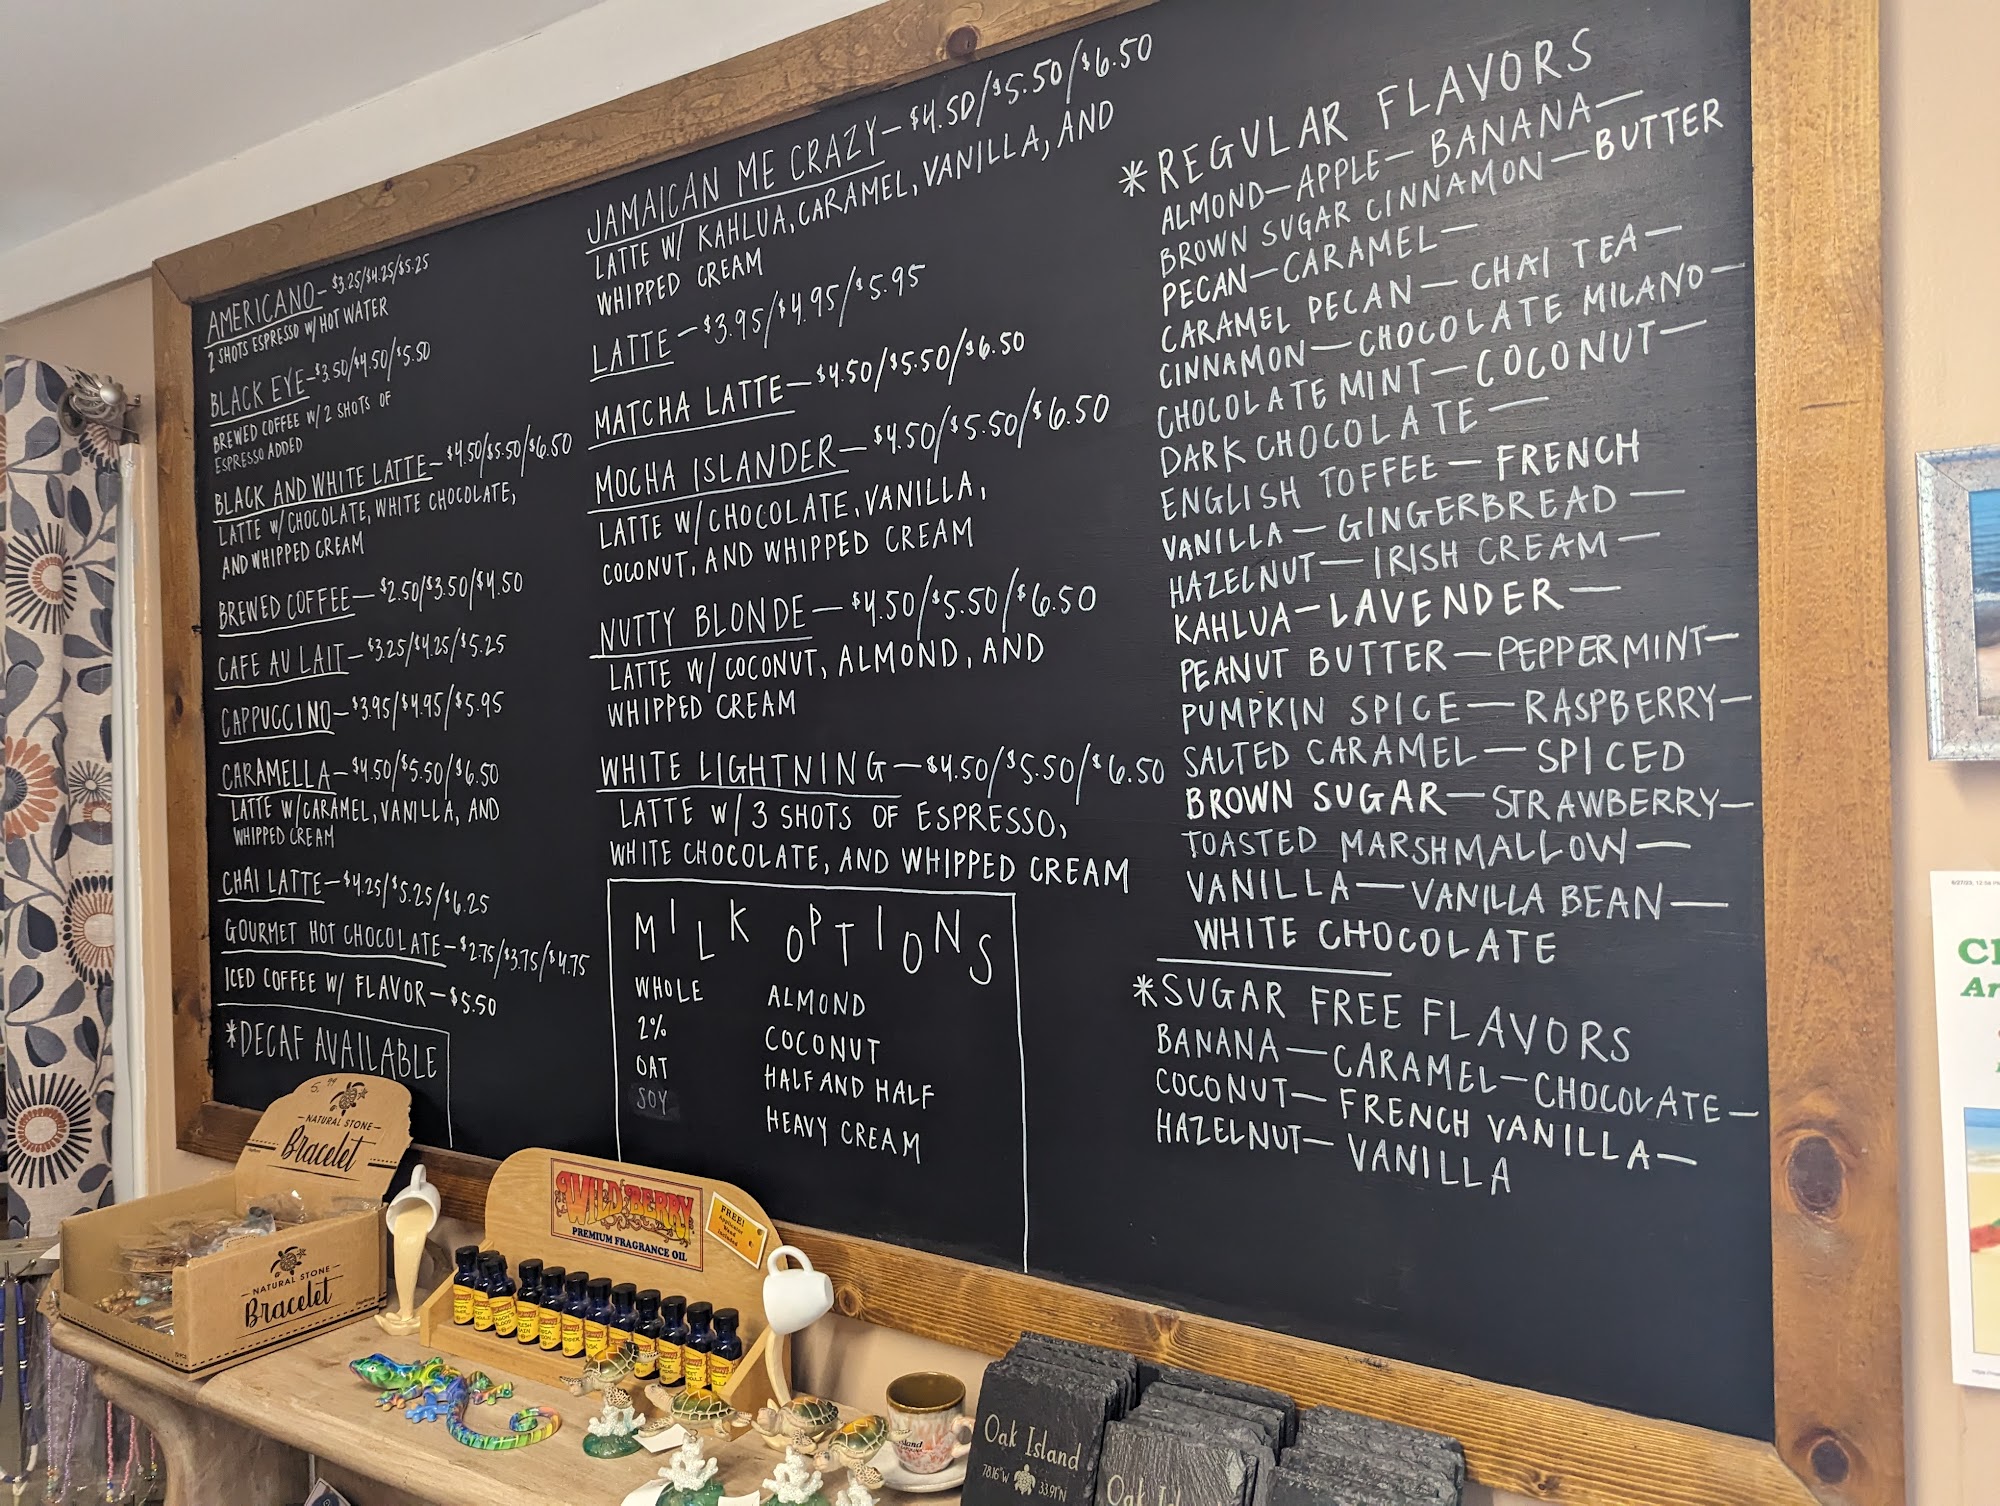 AMERICANO-$3.25/$4.25/$5.25
2 SHOTS ESPRESSO W/ HOT WATER
BLACK EYE-$3.50/$4.50/$5.50
BREWED COFFEE W/ 2 SHOTS OF
ESPRESSO ADDED
BLACK AND WHITE LATTE-$4.50/$5.50/$6.50
LATTE W/ CHOCOLATE, WHITE CHOCOLATE,
AND WHIPPED CREAM
BREWED COFFEE-$2.50/$3.50/$4.50
CAFE AU LAIT-$3.25/$4.25/$5.25
CAPPUCCINO-$3.95/$4.95/$5.95
CARAMELLA-$4.50/$5.50/$6.50
LATTE W/CARAMEL, VANILLA, AND
WHIPPED CREAM
CHAI LATTE-$4.25/$5.25/$6.25
GOURMET HOT CHOCOLATE-$2.75/$3.75/$4.75
ICED COFFEE W/ FLAVOR-$5.50
*DECAF AVAILABLE
JAMAICAN ME CRAZY-$4.50/$5.50/$6.50
LATTE W/ KAHLUA, CARAMEL, VANILLA, AND
WHIPPED CREAM
LATTE-$3.95/$4.95/$5.95
MATCHA LATTE-$4.50/$5.50/$6.50
MOCHA ISLANDER-$4.50/$5.50/$6.50
LATTE W/ CHOCOLATE, VANILLA,
COCONUT, AND WHIPPED CREAM
NUTTY BLONDE-$4.50/$5.50/$6.50
LATTE W/ COCONUT, ALMOND, AND
WHIPPED CREAM
WHITE LIGHTNING-$4.50/$5.50/$6.50
LATTE W/ 3 SHOTS OF ESPRESSO,
WHITE CHOCOLATE, AND WHIPPED CREAM
MILK OPTIONS
WHOLE
2%
OAT
SOY
ALMOND
COCONUT
HALF AND HALF
HEAVY CREAM
*REGULAR FLAVORS
ALMOND-APPLE-BANANA-
BROWN SUGAR CINNAMON-BUTTER
PECAN-CARAMEL-
CARAMEL PECAN-CHAI TEA-
CINNAMON-CHOCOLATE MILANO-
CHOCOLATE MINT-COCONUT-
DARK CHOCOLATE-
ENGLISH TOFFEE-FRENCH
VANILLA-GINGERBREAD-
HAZELNUT-IRISH CREAM-
KAHLUA-LAVENDER-
PEANUT BUTTER-PEPPERMINT-
PUMPKIN SPICE-RASPBERRY-
SALTED CARAMEL-SPICED
BROWN SUGAR-STRAWBERRY-
TOASTED MARSHMALLOW-
VANILLA-VANILLA BEAN-
WHITE CHOCOLATE
*SUGAR FREE FLAVORS
BANANA-CARAMEL-CHOCOLATE-
COCONUT-FRENCH VANILLA-
HAZELNUT-VANILLA
5.99
NATURAL STONE
Bracelet
NATURAL STONE
Bracelet
WILD BERRY
PREMIUM FRAGRANCE OIL
FREE!
Applicator
Wand
Included
Oak Island
78.16°W 33.91°N
Oak